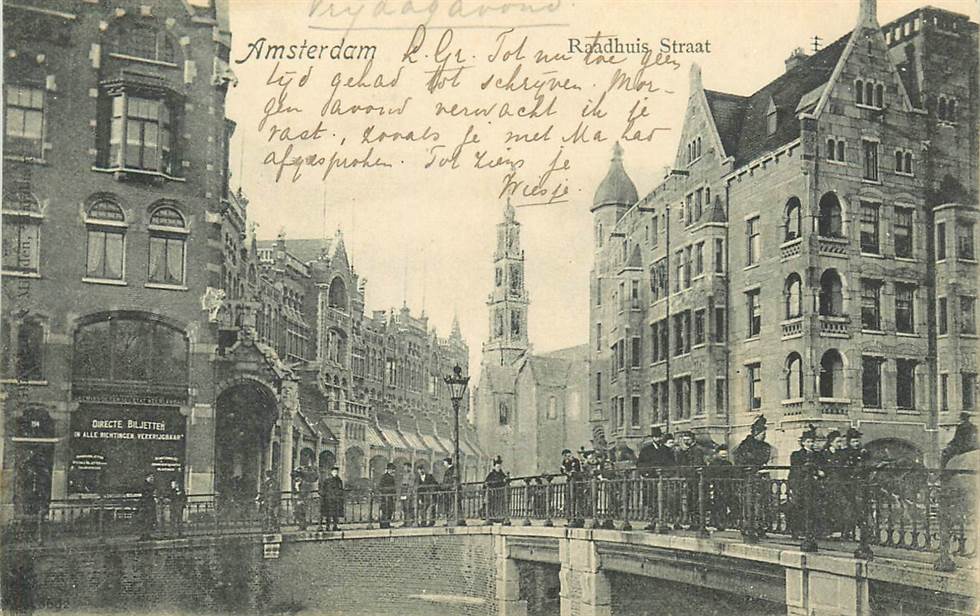 Vrijdagavond.
Amsterdam
Raadhuis Straat
L. Gr. Tot nu toe geen
tijd gehad tot schrijven. Mor-
gen avond verwacht ik je
vast., zooals je met Ma had
afgesproken. Tot ziens je
Wiesje.
DIRECTE BILJETTEN
IN ALLE RICHTINGEN VERKRIJGBAAR